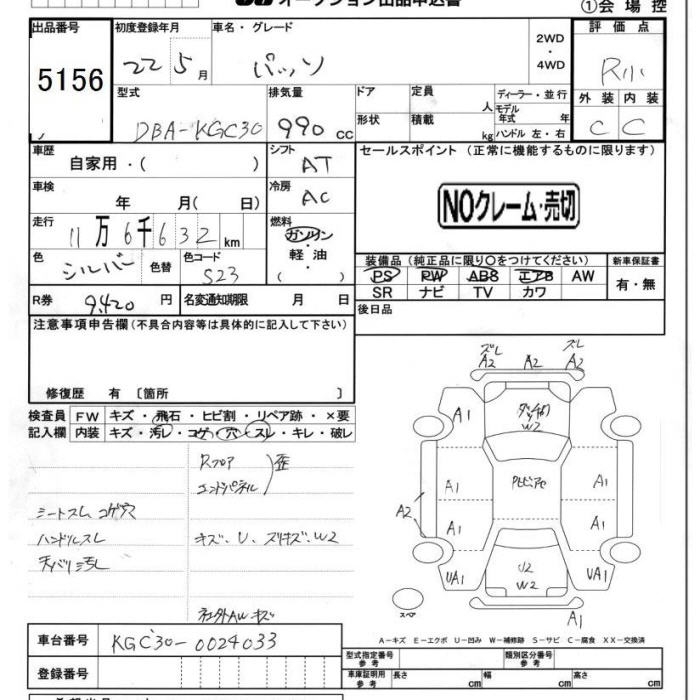 オークション出品申込書
①会場控
出品番号 初度登録年月 車名・グレード 2WD・4WD 評価点
5156 22 5月 パッソ R小
型式 排気量 ドア 定員 人 ディーラー・並行 外装 内装
DBA-KGC30 990 cc 形状 積載 kg モデル年式 年 ハンドル 左・右 C C
車歴 自家用・( ) シフト AT セールスポイント (正常に機能するものに限ります)
車検 年 月( 日) 冷房 AC NOクレーム・売切
走行 11万6千632km 燃料 ガソリン・軽油 ( )
色 シルバー 色替 色コード S23 装備品 (純正品に限り○をつけてください) 新車保証書
PS PW ABS エアB AW 有・無
SR ナビ TV カワ
R券 9,420円 名変通知期限 月 日 後日品
注意事項申告欄(不具合内容等は具体的に記入して下さい)
修復歴 有 〔箇所 〕
検査員記入欄 FW キズ・飛石・ヒビ割・リペア跡・×要
内装 キズ・汚レ・コゲ・穴・スレ・キレ・破レ
Rフロア
エンドパネル 歪
シートスレ コゲ穴
ハンドルスレ キズ・U、ズリキズ・W2
天バリ汚レ
社外AW キズ
ズレ A2 A2 ズレ A2
A1 W2 A1
A1 A1
A2 A1 A1
UA1 U2 W2 UA1
スペア A1
A－キズ E－エクボ U－凹み W－補修跡 S－サビ C－腐食 XX－交換済
車台番号 KGC30-0024033
型式指定番号 参考 類別区分番号 参考
登録番号 車庫証明用 参考 長さ cm 幅 cm 高さ cm